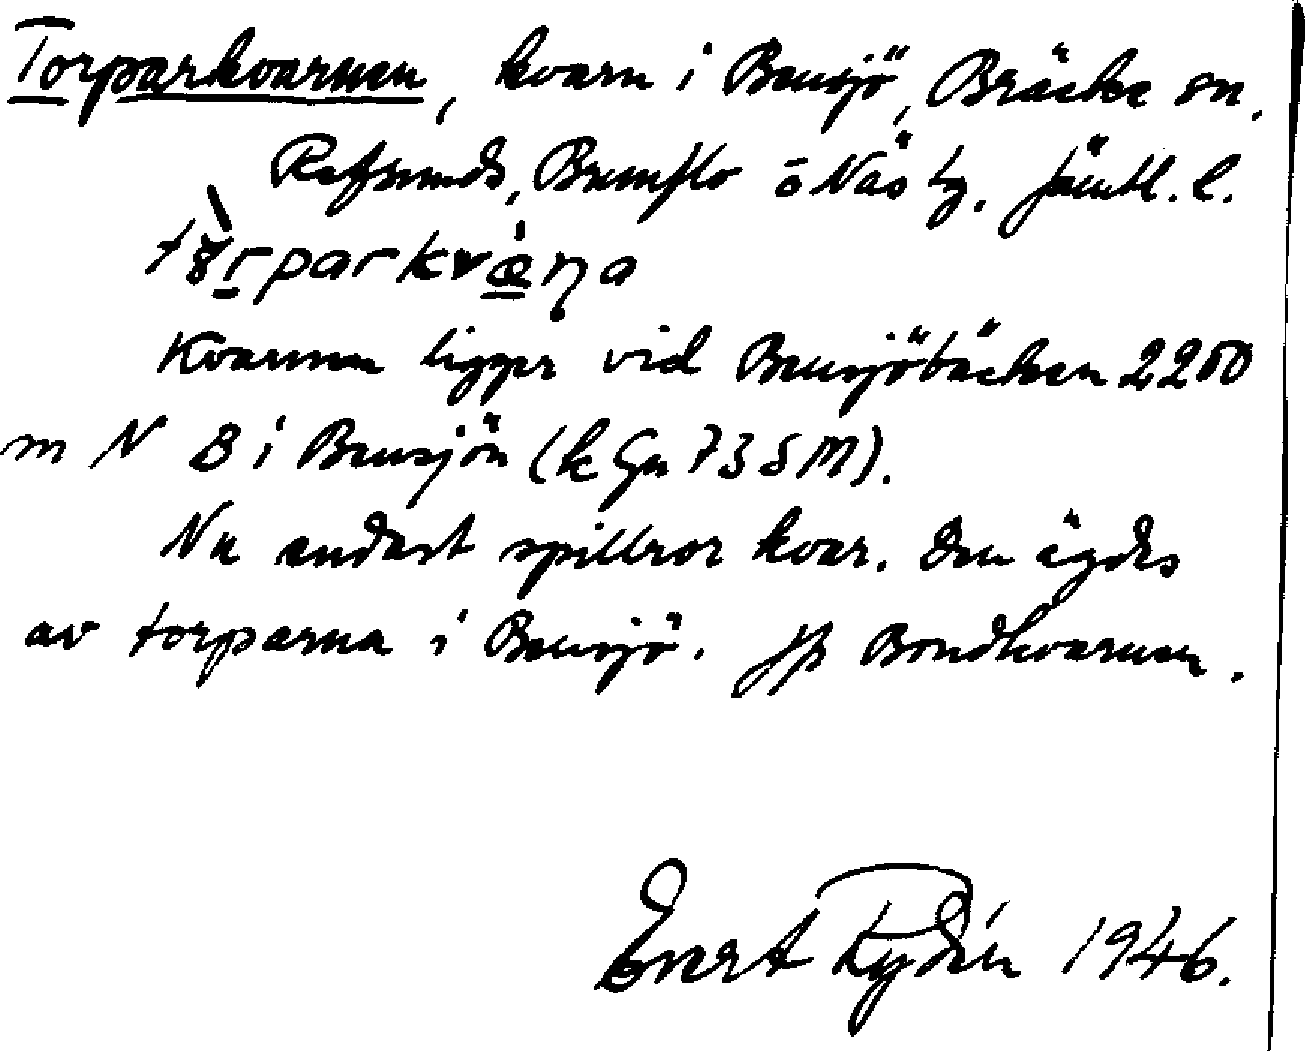 Torparkvarnen, kvarn i Bensjö, Bräcke sn.
Refsunds, Brunflo o Näs tg. Jämtl. l.
Kvarnen ligger vid Bensjöbäcken 2200
m N B i Bensjön (k Gn 73 5 M).
Nu endast spillror kvar. Den ägdes
av torparna i Bensjö. Jfr Bondkvarnen.
Evert Rydén 1946.